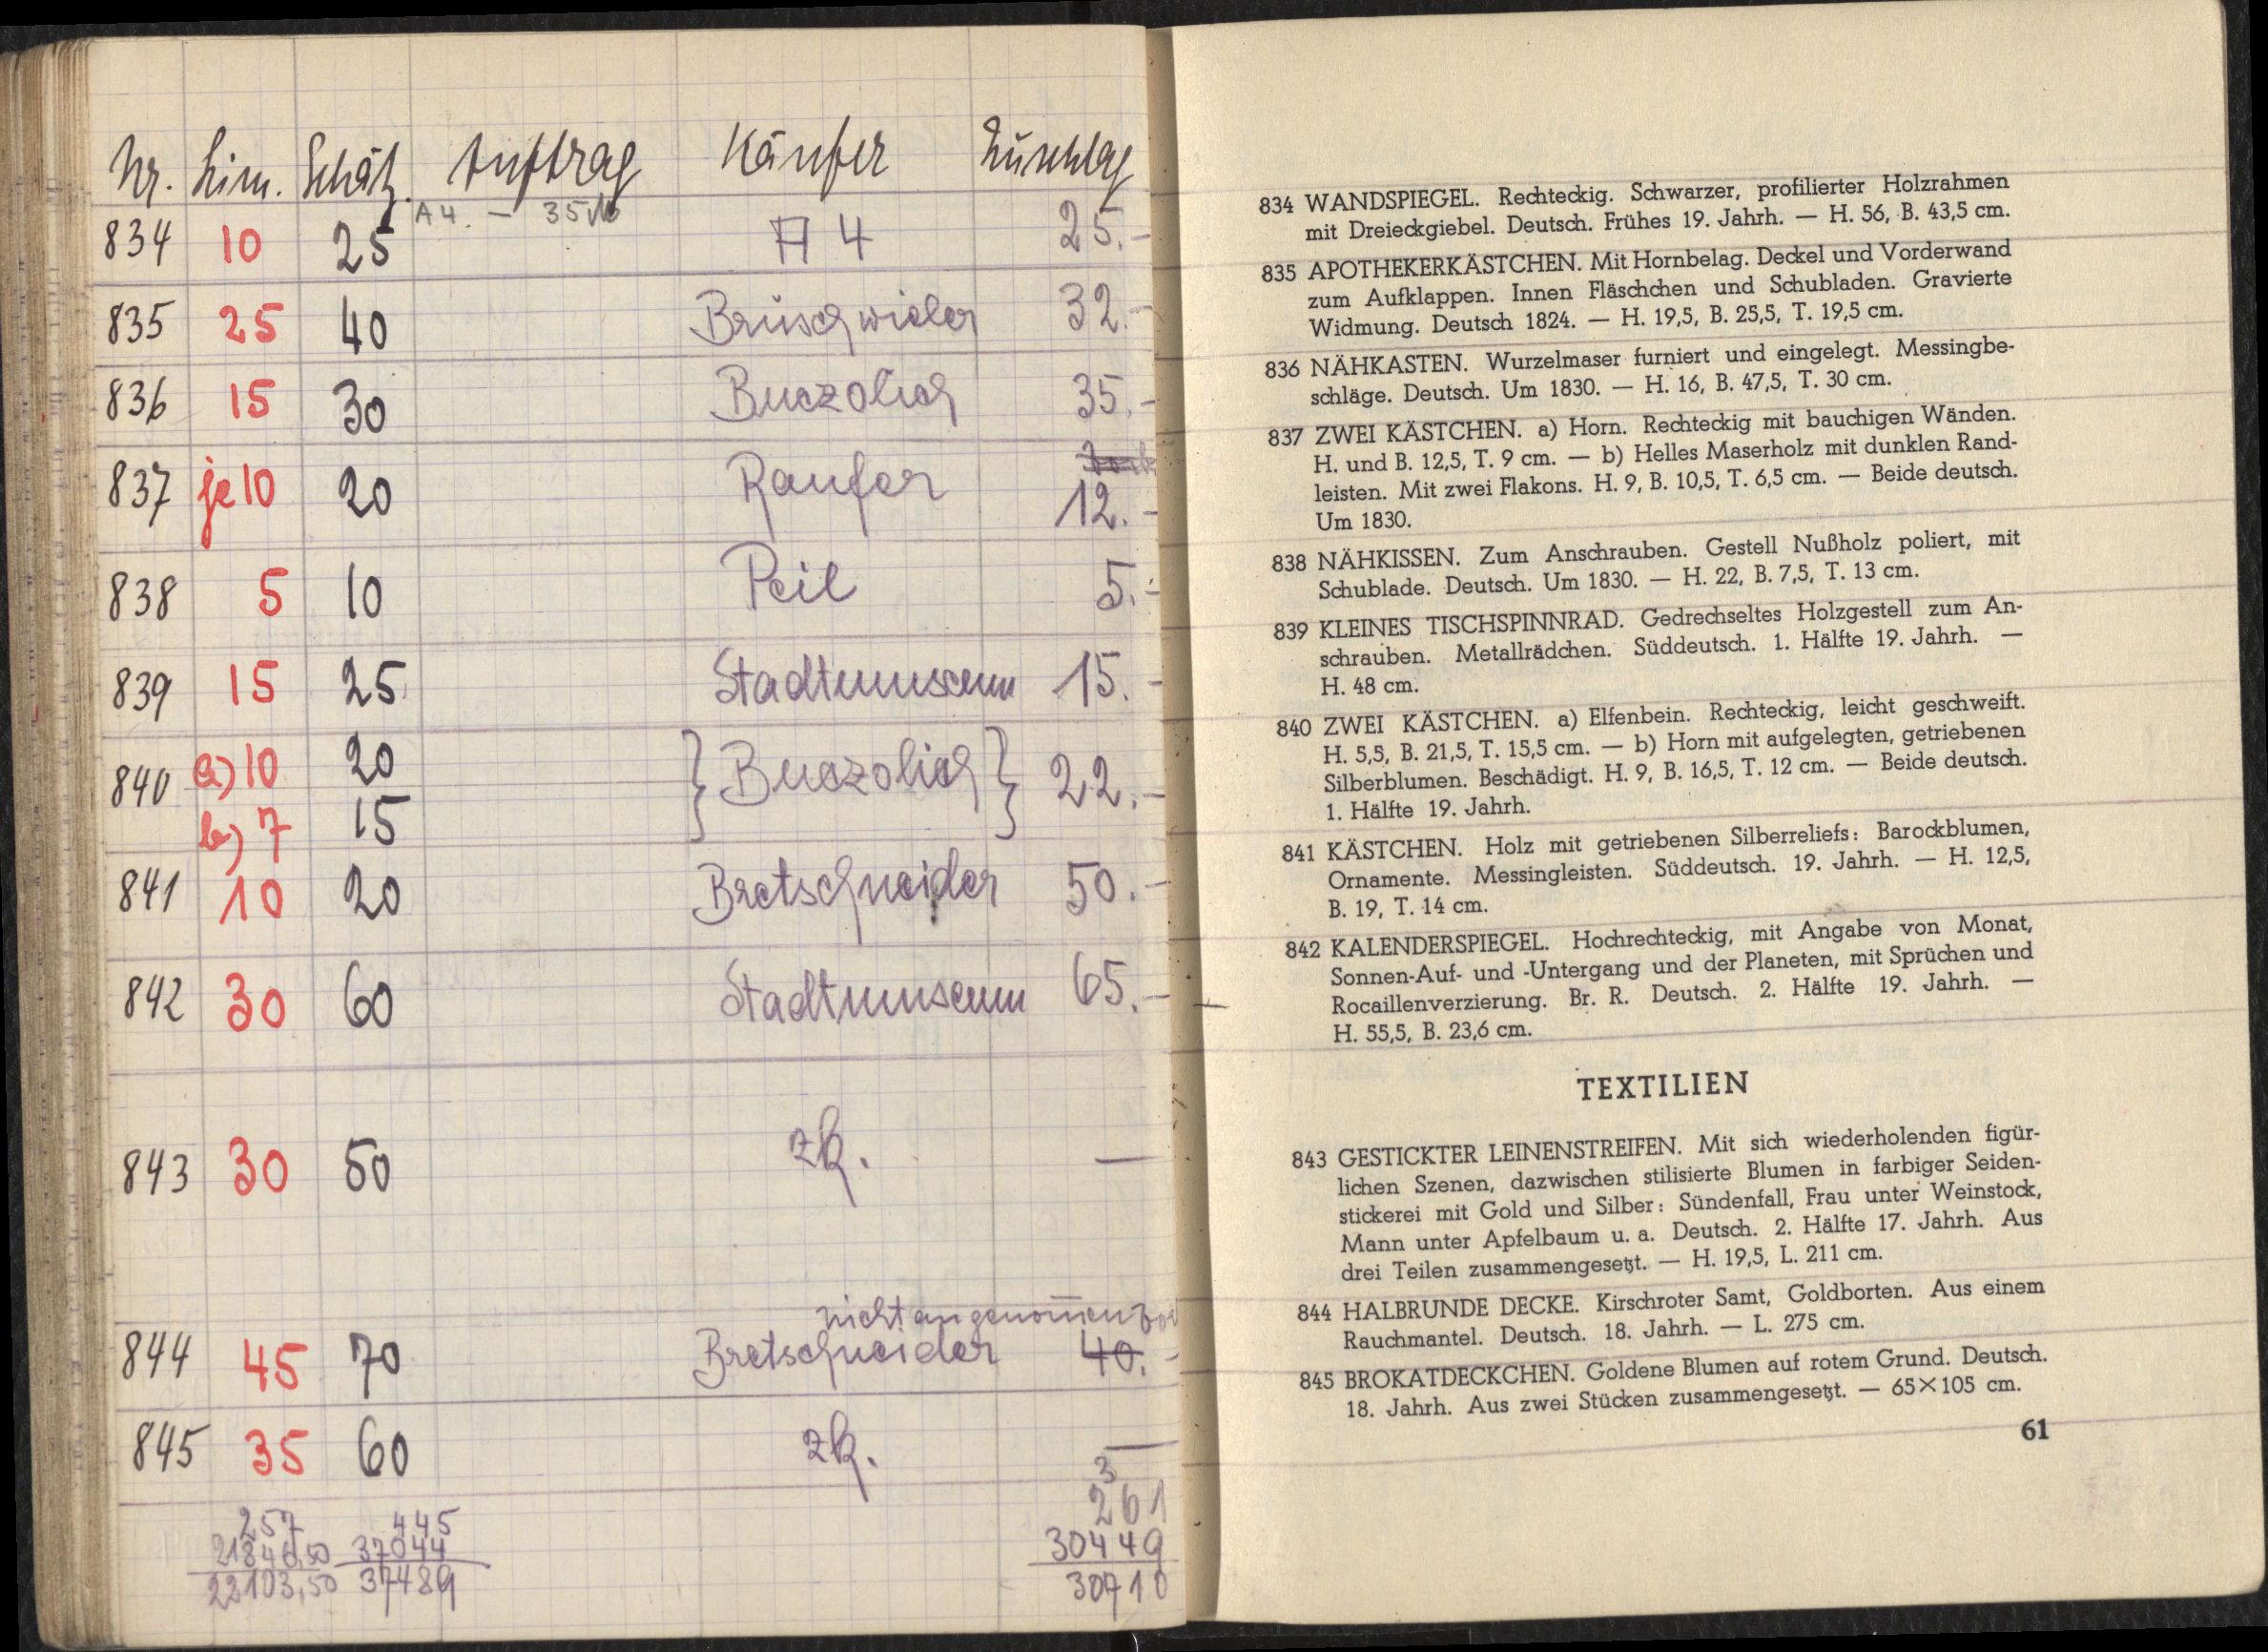 Nr. Lim. Schätz. Auftrag Käufer Zuschlag
834 10 25 A4. — 35 A4 25.-
835 25 40 Brüschwieler 32.-
836 15 30 Buczolich 35.-
837 je 10 20 Raufer 12.-
838 5 10 Peil 5.-
839 15 25 Stadtmuseum 15.-
840 a) 10 20 } Buczolich } 22.-
b) 7 15
841 10 20 Bretschneider 50.-
842 30 60 Stadtmuseum 65.-
843 30 50 zk. —
nicht angenommen
844 45 70 Bretschneider 40.-
845 35 60 zk. —
3
257 445 261
21846,50 37044 30449
22103,50 37489 30710
834 WANDSPIEGEL. Rechteckig. Schwarzer, profilierter Holzrahmen
mit Dreieckgiebel. Deutsch. Frühes 19. Jahrh. — H. 56, B. 43,5 cm.
835 APOTHEKERKÄSTCHEN. Mit Hornbelag. Deckel und Vorderwand
zum Aufklappen. Innen Fläschchen und Schubladen. Gravierte
Widmung. Deutsch 1824. — H. 19,5, B. 25,5, T. 19,5 cm.
836 NÄHKASTEN. Wurzelmaser furniert und eingelegt. Messingbe-
schläge. Deutsch. Um 1830. — H. 16, B. 47,5, T. 30 cm.
837 ZWEI KÄSTCHEN. a) Horn. Rechteckig mit bauchigen Wänden.
H. und B. 12,5, T. 9 cm. — b) Helles Maserholz mit dunklen Rand-
leisten. Mit zwei Flakons. H. 9, B. 10,5, T. 6,5 cm. — Beide deutsch.
Um 1830.
838 NÄHKISSEN. Zum Anschrauben. Gestell Nußholz poliert, mit
Schublade. Deutsch. Um 1830. — H. 22, B. 7,5, T. 13 cm.
839 KLEINES TISCHSPINNRAD. Gedrechseltes Holzgestell zum An-
schrauben. Metallrädchen. Süddeutsch. 1. Hälfte 19. Jahrh. —
H. 48 cm.
840 ZWEI KÄSTCHEN. a) Elfenbein. Rechteckig, leicht geschweift.
H. 5,5, B. 21,5, T. 15,5 cm. — b) Horn mit aufgelegten, getriebenen
Silberblumen. Beschädigt. H. 9, B. 16,5, T. 12 cm. — Beide deutsch.
1. Hälfte 19. Jahrh.
841 KÄSTCHEN. Holz mit getriebenen Silberreliefs: Barockblumen,
Ornamente. Messingleisten. Süddeutsch. 19. Jahrh. — H. 12,5,
B. 19, T. 14 cm.
842 KALENDERSPIEGEL. Hochrechteckig, mit Angabe von Monat,
Sonnen-Auf- und -Untergang und der Planeten, mit Sprüchen und
Rocaillenverzierung. Br. R. Deutsch. 2. Hälfte 19. Jahrh. —
H. 55,5, B. 23,6 cm.
TEXTILIEN
843 GESTICKTER LEINENSTREIFEN. Mit sich wiederholenden figür-
lichen Szenen, dazwischen stilisierte Blumen in farbiger Seiden-
stickerei mit Gold und Silber: Sündenfall, Frau unter Weinstock,
Mann unter Apfelbaum u. a. Deutsch. 2. Hälfte 17. Jahrh. Aus
drei Teilen zusammengesetzt. — H. 19,5, L. 211 cm.
844 HALBRUNDE DECKE. Kirschroter Samt, Goldborten. Aus einem
Rauchmantel. Deutsch. 18. Jahrh. — L. 275 cm.
845 BROKATDECKCHEN. Goldene Blumen auf rotem Grund. Deutsch.
18. Jahrh. Aus zwei Stücken zusammengesetzt. — 65×105 cm.
61